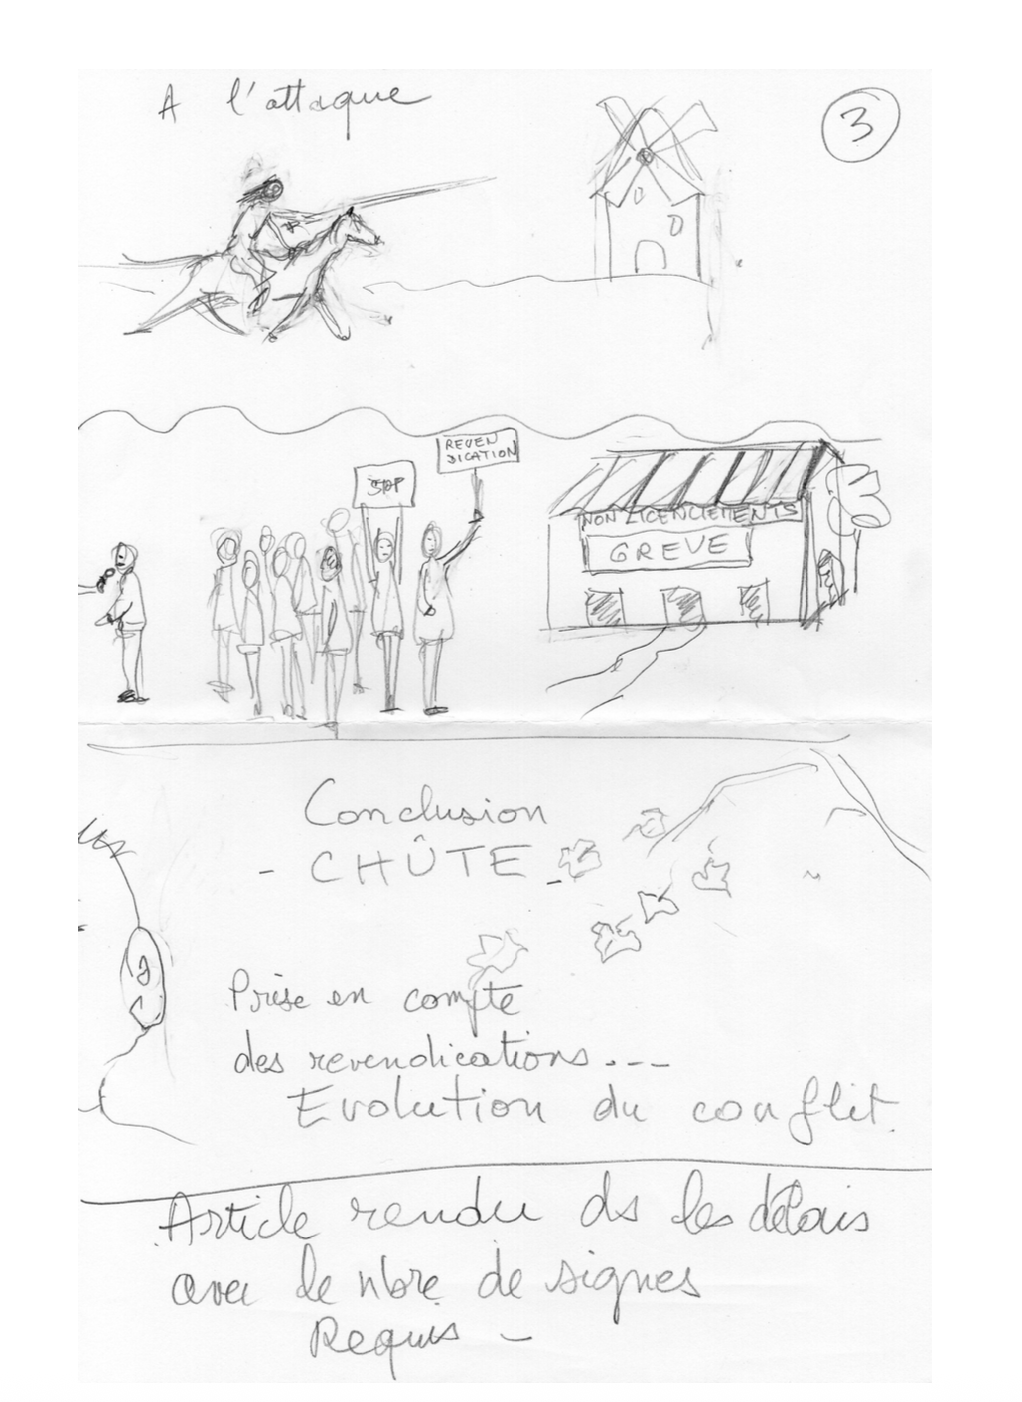 A l'attaque
3
REVEN
DICATION
STOP
NON LICENCIEMENTS
GREVE
Conclusion
- CHÛTE -
Prise en compte
des revendications...
Evolution du conflit.
Article rendu ds les délais
avec le nbre de signes
Requis -